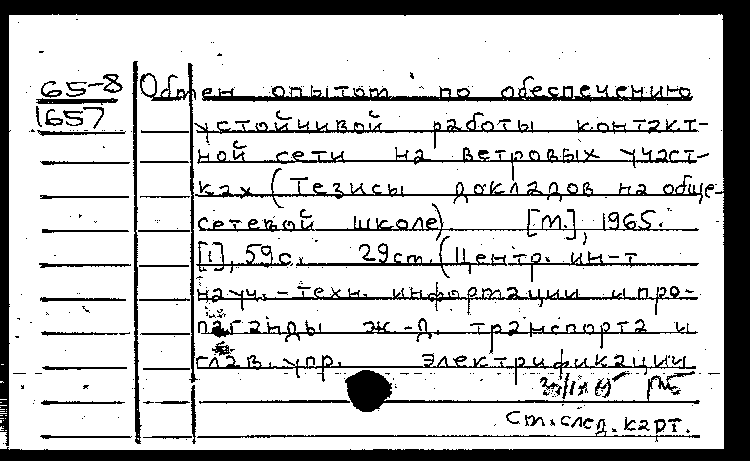 65-8 Обмен опытом по обеспечению
1657 устойчивой работы контакт-
ной сети на ветровых участ-
ках (Тезисы докладов на обще-
сетевой школе). [М.], 1965.
[1], 59с. 29см. (Центр. ин-т
науч.-техн. информации и про-
паганды ж.-д. транспорта и
глав. упр. электрификации
См. след. карт.